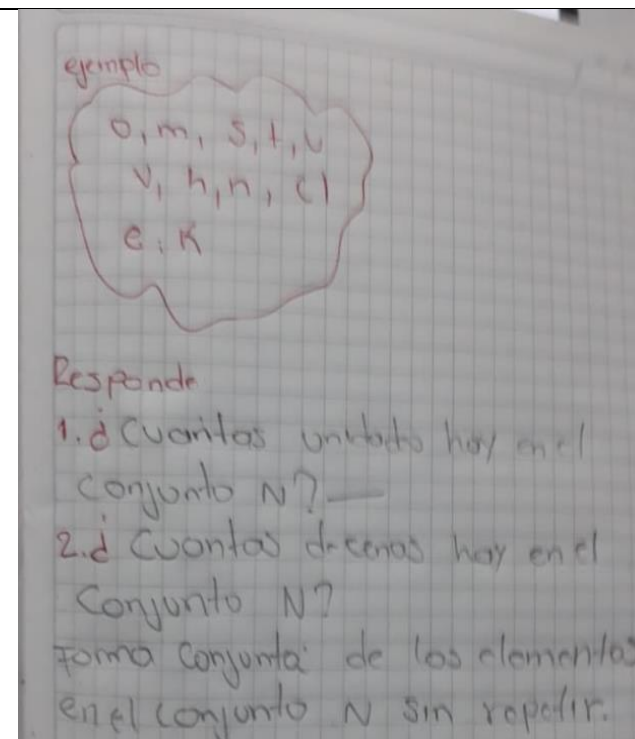 ejemplo
o, m, s, t, u
v, h, n, cl
e, K
Responde
1. ¿Cuantas unidads hay en el
conjunto N? __
2. ¿Cuantas decenas hay en el
Conjunto N?
Forma conjunta de los elementos
en el conjunto N sin repetir.